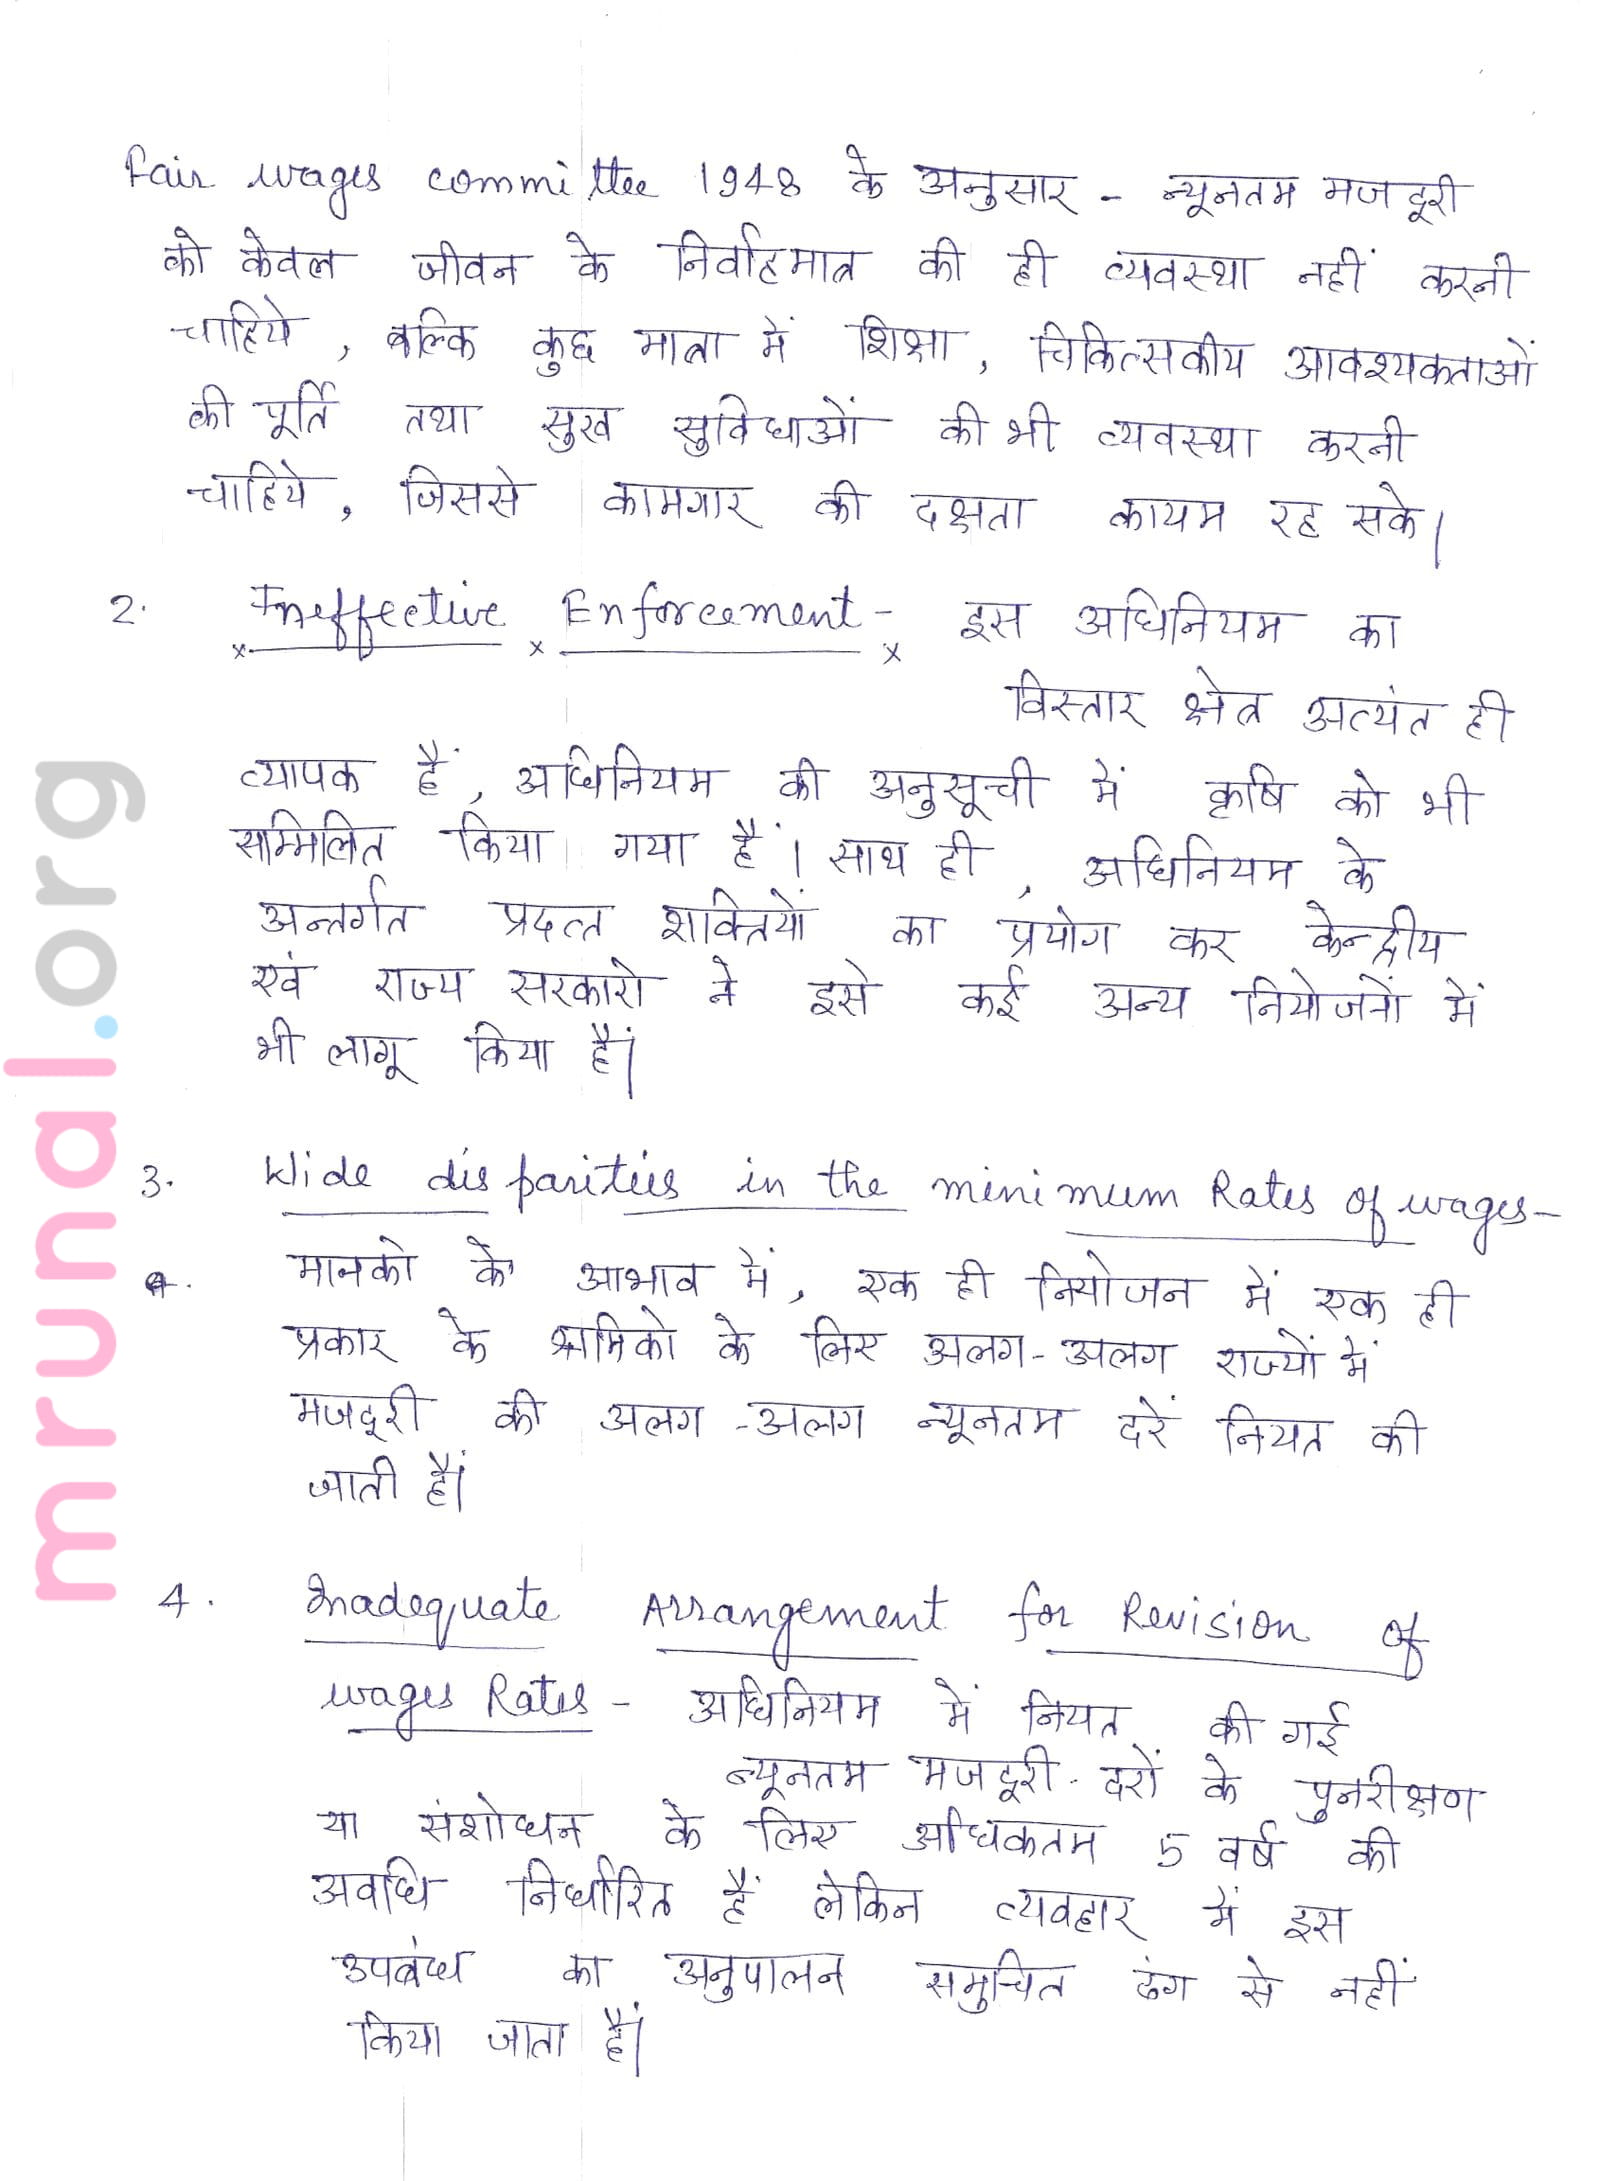 Fair wages committee 1948 के अनुसार - न्यूनतम मजदूरी
को केवल जीवन के निर्वाहमात्र की ही व्यवस्था नहीं करनी
चाहिये, बल्कि कुछ मात्रा में शिक्षा, चिकित्सकीय आवश्यकताओं
की पूर्ति तथा सुख सुविधाओं की भी व्यवस्था करनी
चाहिये, जिससे कामगार की दक्षता कायम रह सके।
2. Ineffective Enforcement - इस अधिनियम का
विस्तार क्षेत्र अत्यंत ही
व्यापक हैं, अधिनियम की अनुसूची में कृषि को भी
सम्मिलित किया गया हैं। साथ ही, अधिनियम के
अन्तर्गत प्रदत्त शक्तियों का प्रयोग कर केन्द्रीय
एवं राज्य सरकारो ने इसे कई अन्य नियोजनों में
भी लागू किया हैं।
3. Wide disparities in the minimum Rates of wages -
मानको के आभाव में, एक ही नियोजन में एक ही
प्रकार के श्रमिको के लिए अलग-अलग राज्यों में
मजदूरी की अलग-अलग न्यूनतम दरें नियत की
जाती हैं।
4. Inadequate Arrangement for Revision of
wages Rates - अधिनियम में नियत की गई
न्यूनतम मजदूरी-दरों के पुनरीक्षण
या संशोधन के लिए अधिकतम 5 वर्ष की
अवधि निर्धारित हैं लेकिन व्यवहार में इस
उपबंध का अनुपालन समुचित ढंग से नहीं
किया जाता हैं।
mrunal.org